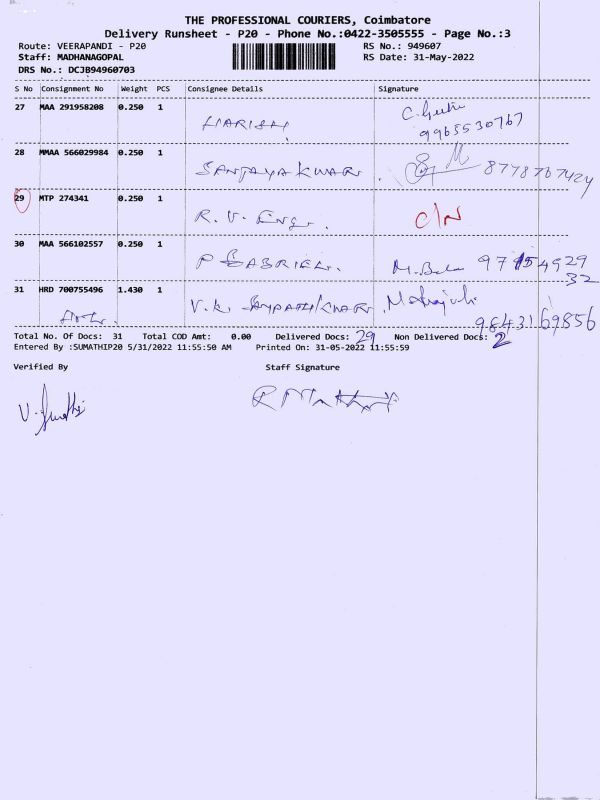 THE PROFESSIONAL COURIERS, Coimbatore
Delivery Runsheet - P20 - Phone No.:0422-3505555 - Page No.:3
Route: VEERAPANDI - P20 RS No.: 949607
Staff: MADHANAGOPAL RS Date: 31-May-2022
DRS No.: DCJB94960703
S No Consignment No Weight PCS Consignee Details Signature
27 MAA 291958208 0.250 1 HARISH
9965530767
28 MMAA 566029984 0.250 1 SANJAYAKUMAR 8778767424
29 MTP 274341 0.250 1 R.V. ENGG. C/N
30 MAA 566102557 0.250 1 P GABRIEL. M. Bala
31 HRD 700755496 1.430 1 V.K. SAMPATHKUMAR
9843169856
Total No. Of Docs: 31 Total COD Amt: 0.00 Delivered Docs: 29 Non Delivered Docs: 2
Entered By :SUMATHIP20 5/31/2022 11:55:50 AM Printed On: 31-05-2022 11:55:59
Verified By Staff Signature